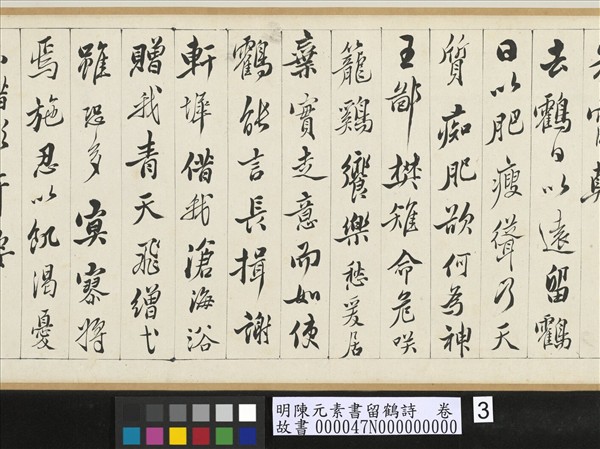 去鶴日以遠留鶴
日以肥瘦聳乃天
質痴肥欲何為神
王鄙樊雉命危咲
籠鷄饗樂愁爰居
棄實走意而如使
鶴能言長揖謝
軒墀借我滄海浴
贈我青天飛繒弋
雖恐多寞寥將
焉施忍以飢渴憂
明陳元素書留鶴詩 卷
故書 000047N000000000
3